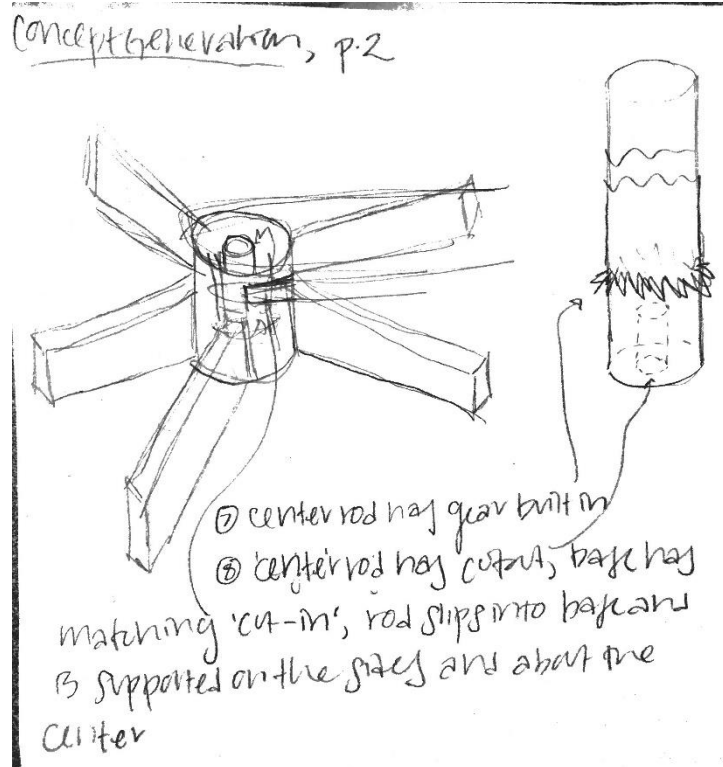 Concept Generation, p.2
⑦ center rod has gear built in
⑧ center rod has cutout, base has
matching 'cut-in', rod slips into base and
is supported on the sides and about the
center